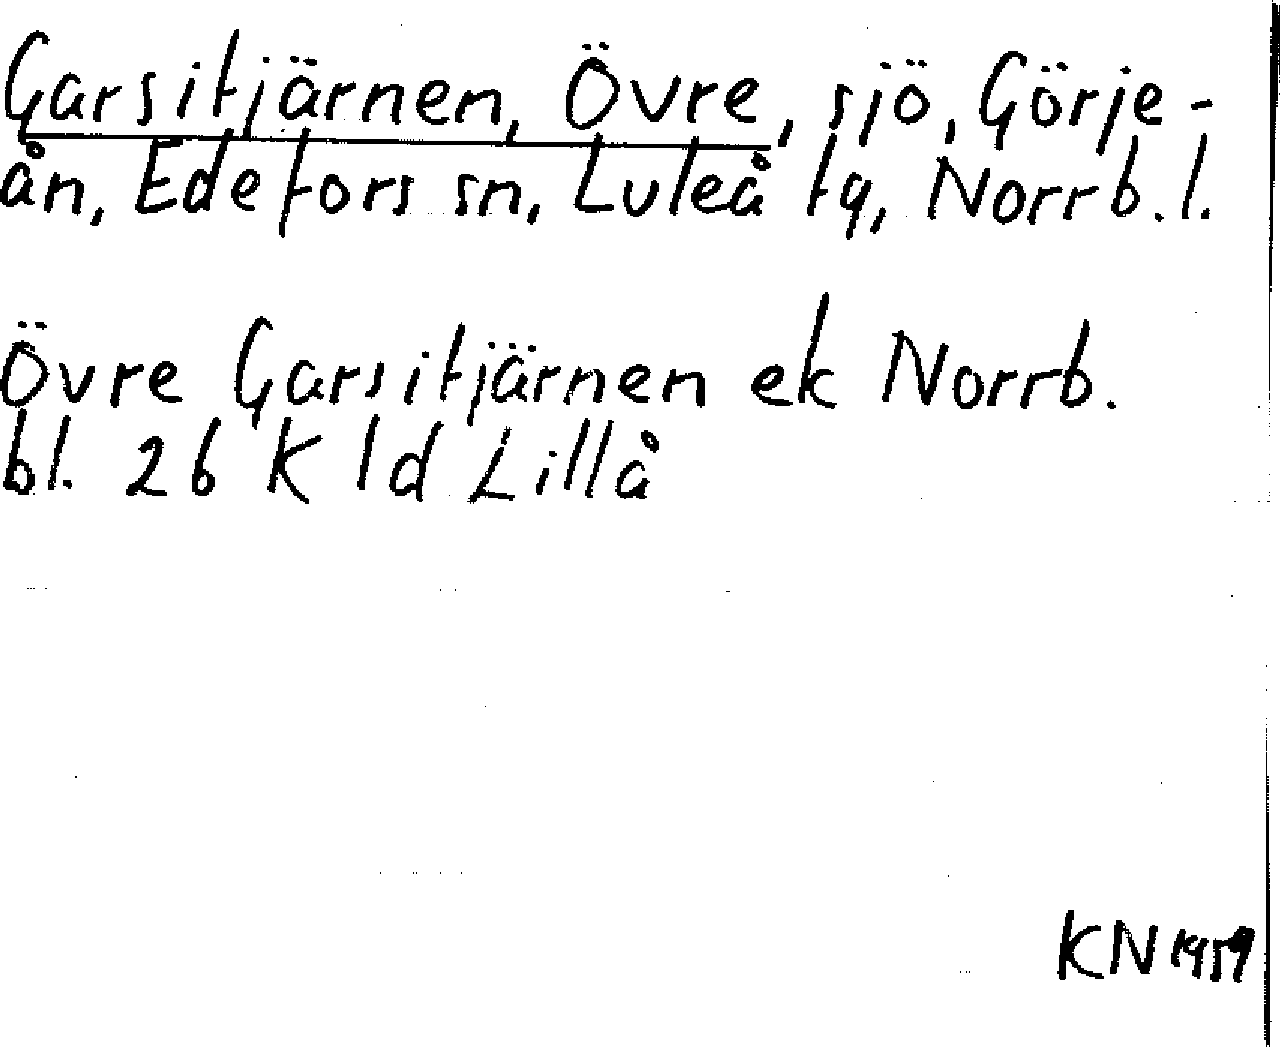 Garsitjärnen, Övre, sjö, Görje-
ån, Edefors sn, Luleå tg, Norrb. l.
Övre Garsitjärnen ek Norrb.
bl. 26 K ld Lillå
KN 1959